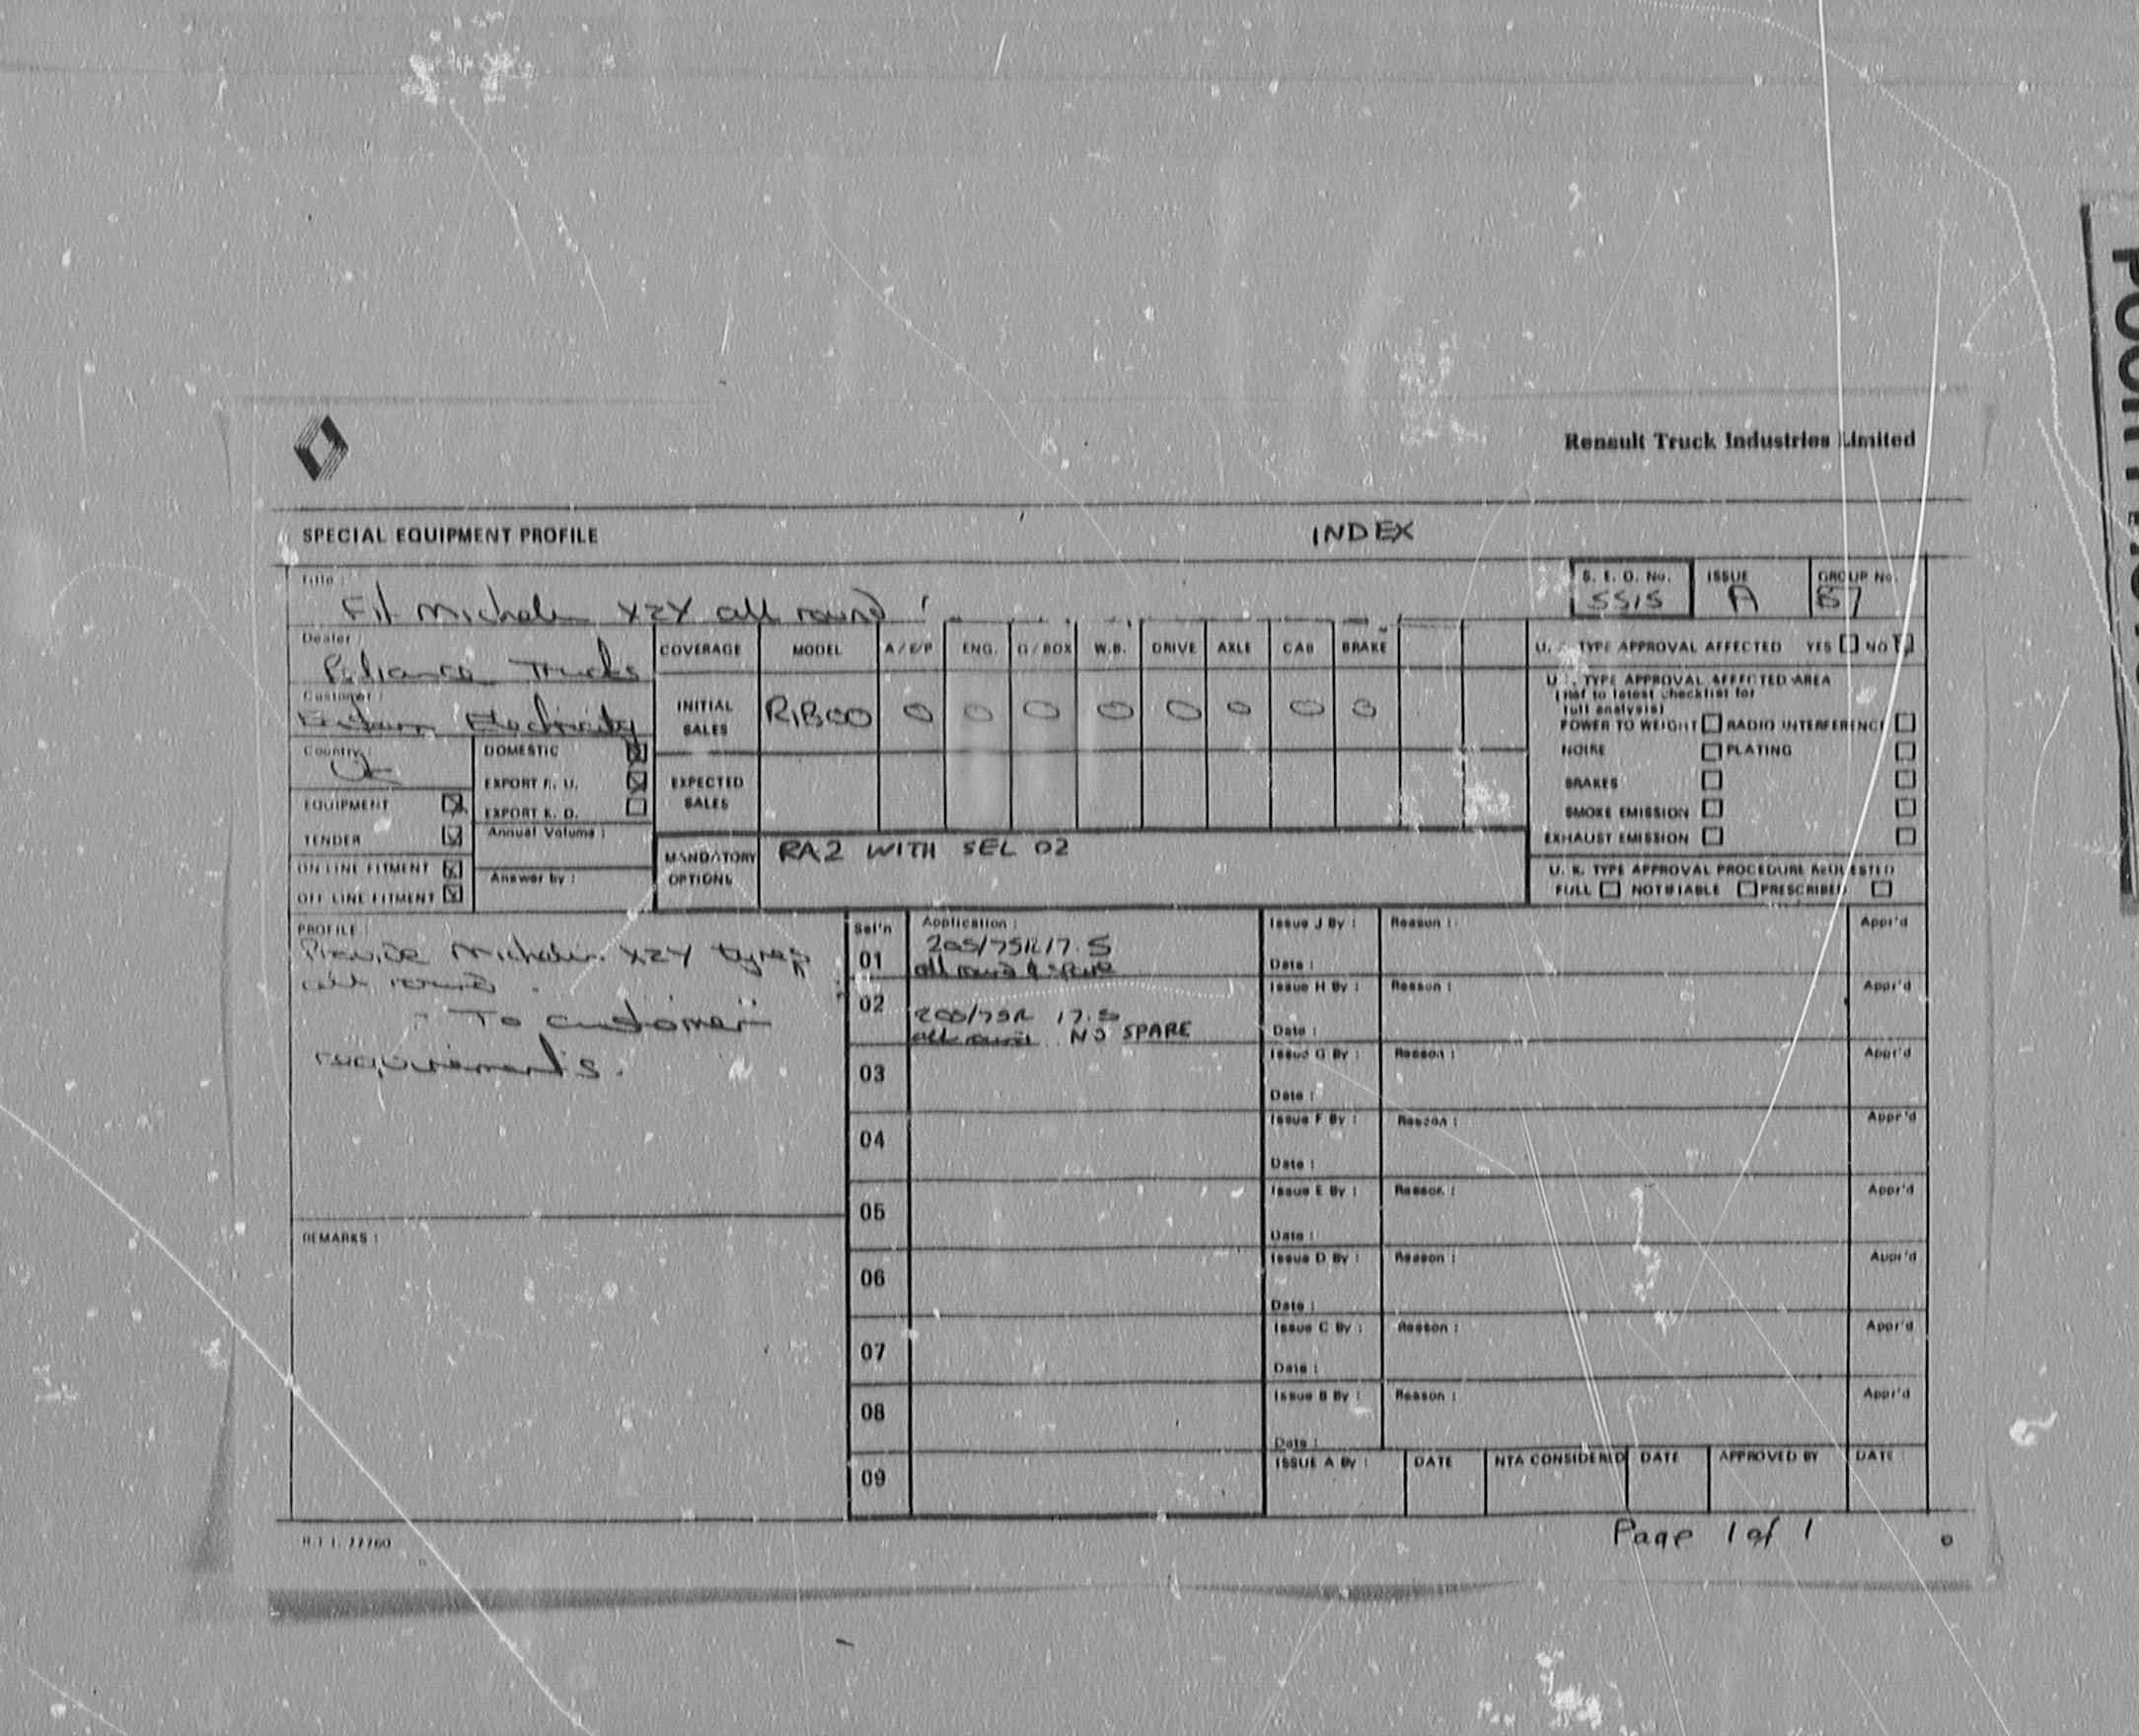 Renault Truck Industries Limited
SPECIAL EQUIPMENT PROFILE INDEX
Title :
Fit Michelin XZY all round
S. E. O. No. 5515
ISSUE A
GROUP No. B7
Dealer :
Reliance Trucks
Customer :
Eastern Electricity
Country :
UK
DOMESTIC
EXPORT B. U.
EXPORT K. D.
EQUIPMENT
TENDER
Annual Volume :
ON LINE FITMENT
OFF LINE FITMENT
Answer by :
COVERAGE MODEL A/E/P ENG. G/BOX W.B. DRIVE AXLE CAB BRAKE
INITIAL SALES 0 0 0 0 0 0 0 0
EXPECTED SALES
MANDATORY OPTIONS RA2 WITH SEL 02
TYPE APPROVAL AFFECTED YES NO
TYPE APPROVAL AFFECTED AREA
(ref to latest checklist for
full analysis)
POWER TO WEIGHT RADIO INTERFERENCE
NOISE PLATING
BRAKES
SMOKE EMISSION
EXHAUST EMISSION
U. K. TYPE APPROVAL PROCEDURE REQUESTED
FULL NOTIFIABLE PRESCRIBED
PROFILE :
Provide Michelin XZY tyres
all round
To customer
requirements.
REMARKS :
Sel'n Application :
01 205/75R17.5
all round & spare
02 205/75R 17.5
all round NO SPARE
03
04
05
06
07
08
09
Issue J By : Reason : Appr'd
Date :
Issue H By : Reason : Appr'd
Date :
Issue G By : Reason : Appr'd
Date :
Issue F By : Reason : Appr'd
Date :
Issue E By : Reason : Appr'd
Date :
Issue D By : Reason : Appr'd
Date :
Issue C By : Reason : Appr'd
Date :
Issue B By : Reason : Appr'd
Date :
ISSUE A By : DATE NTA CONSIDERED DATE APPROVED BY DATE
R.T.I. 77760
Page 1 of 1